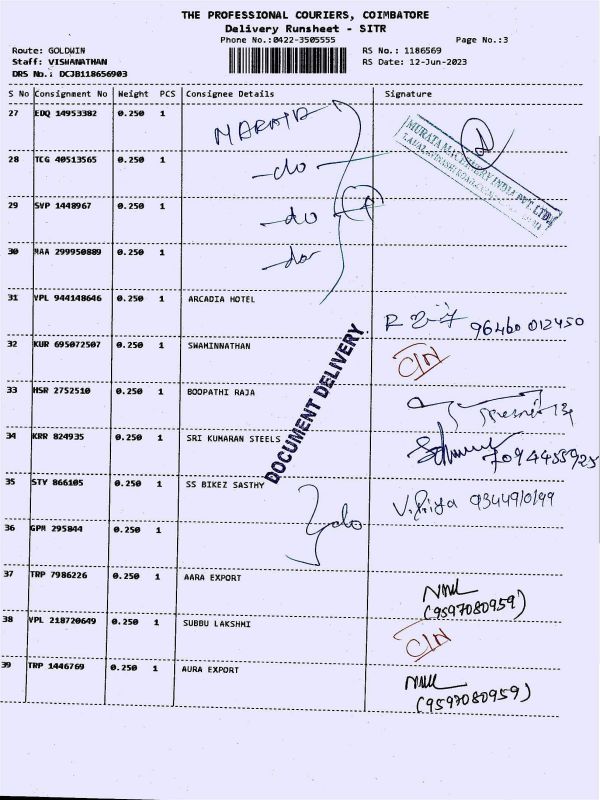 THE PROFESSIONAL COURIERS, COIMBATORE
Delivery Runsheet - SITR
Phone No.:0422-3505555
Page No.:3
Route: GOLDWIN
RS No.: 1186569
Staff: VISWANATHAN
RS Date: 12-Jun-2023
DRS No.: DCJB118656903
S No Consignment No Weight PCS Consignee Details Signature
27 EDQ 14953382 0.250 1
28 TCG 40513565 0.250 1 -do-
29 SVP 1448967 0.250 1 -do
30 MAA 299950889 0.250 1 -do-
MURATA MACHINERY INDIA PVT LTD
31 VPL 944148646 0.250 1 ARCADIA HOTEL
32 KUR 695072507 0.250 1 SWAMINNATHAN C/N
33 HSR 2752510 0.250 1 BOOPATHI RAJA
34 KRR 824935 0.250 1 SRI KUMARAN STEELS 7094455925
DOCUMENT DELIVERY
35 STY 866105 0.250 1 SS BIKEZ SASTHY V. Priya 9344910199
36 GPM 295844 0.250 1 do
37 TRP 7986226 0.250 1 AARA EXPORT
(9597080959)
38 VPL 218720649 0.250 1 SUBBU LAKSHMI C/N
39 TRP 1446769 0.250 1 AURA EXPORT
(9597080959)